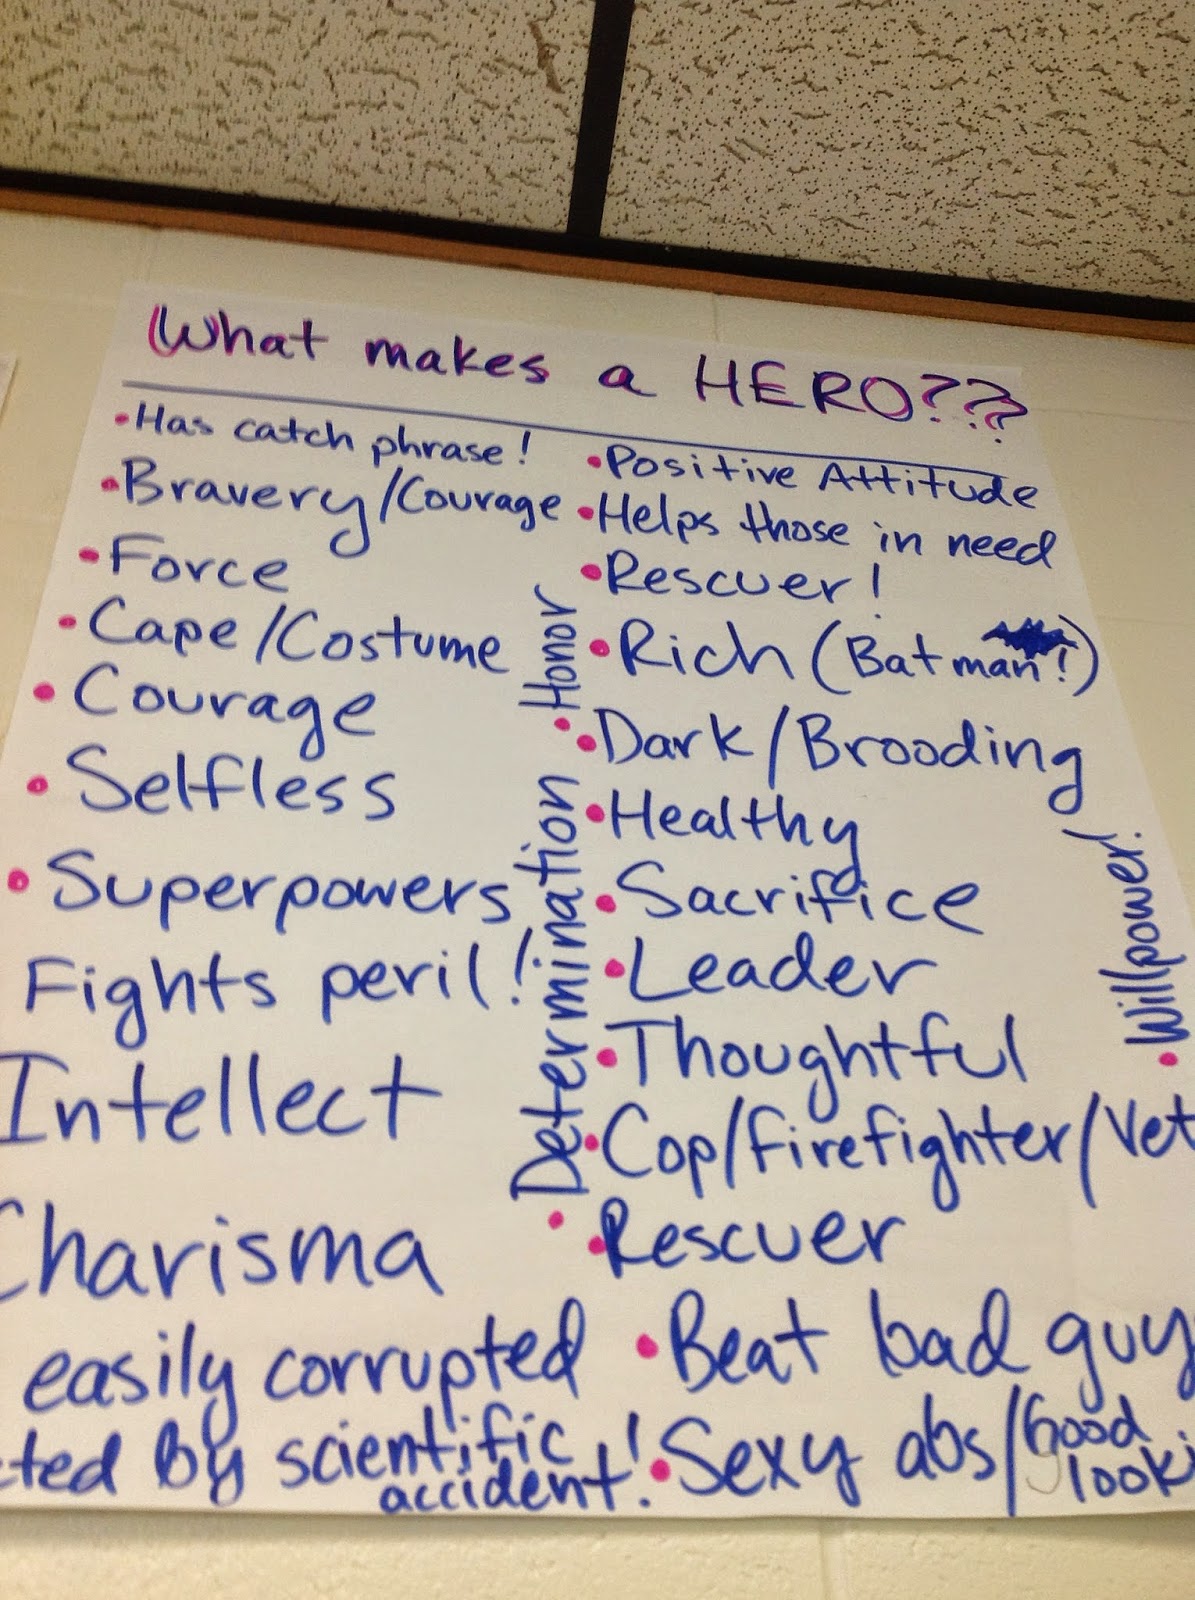 What makes a HERO???
• Has catch phrase!
• Bravery/Courage
• Force
• Cape/Costume
• Courage
• Selfless
• Superpowers
Fights peril!
Intellect
Charisma
easily corrupted
ted by scientific
accident!
• Honor
• Determination
• Positive Attitude
• Helps those in need
• Rescuer!
• Rich (Batman!)
• Dark/Brooding
• Healthy
• Sacrifice
• Leader
• Thoughtful
• Cop/Firefighter/Vet
• Rescuer
• Beat bad guy
• Sexy abs/Good
look
• Willpower!